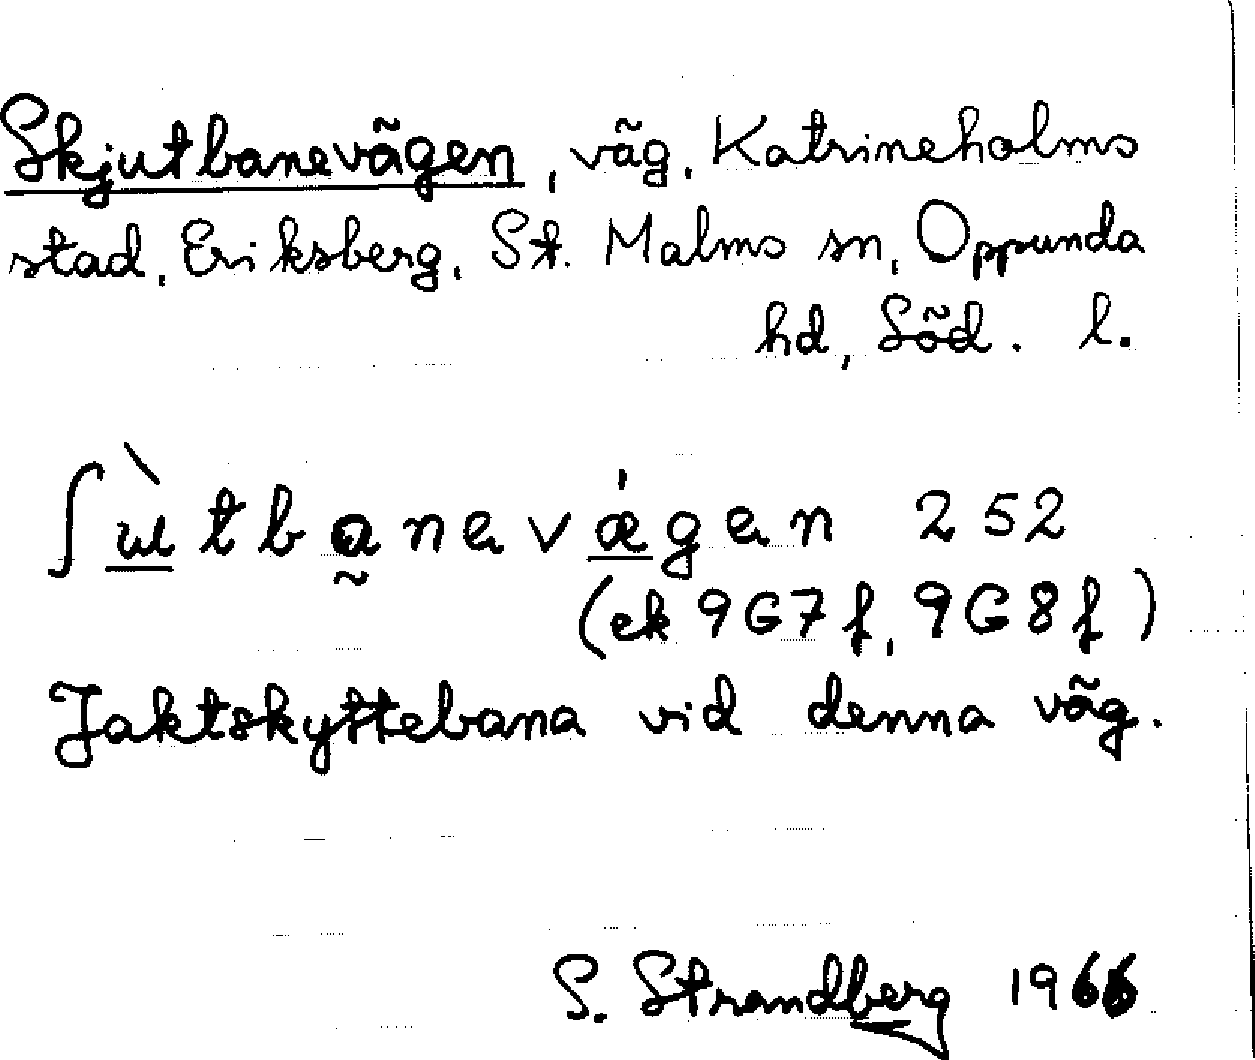 Skjutbanevägen, väg, Katrineholms
stad, Eriksberg, St. Malms sn, Oppunda
hd, Söd. l.
ʃù̲tba̰nevǽ̲gen 252
(ek 9G7f, 9G8f)
Jaktskyttebana vid denna väg.
S. Strandberg 1966